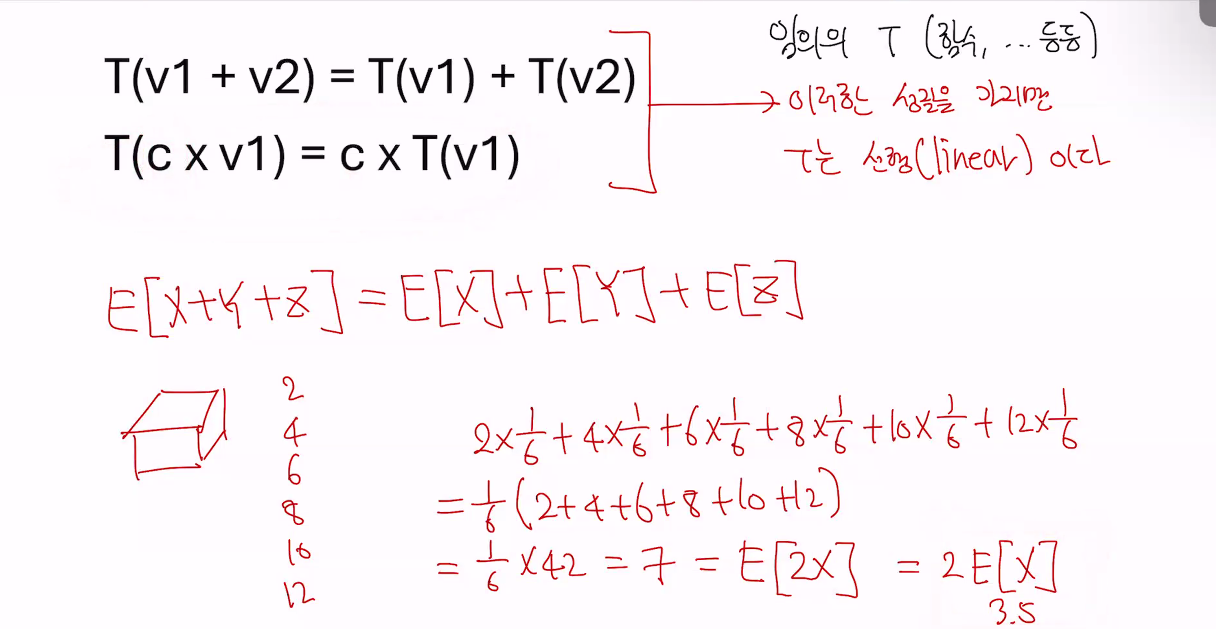 임의의 T (함수, ... 등등)
T(v1 + v2) = T(v1) + T(v2)
T(c x v1) = c x T(v1)
→ 이러한 성질을 가지면
T는 선형(linear) 이다
E[X+Y+Z] = E[X]+E[Y]+E[Z]
2
4
6
8
10
12
2×1/6 + 4×1/6 + 6×1/6 + 8×1/6 + 10×1/6 + 12×1/6
= 1/6 (2+4+6+8+10+12)
= 1/6 ×42 = 7 = E[2X] = 2E[X]
3.5